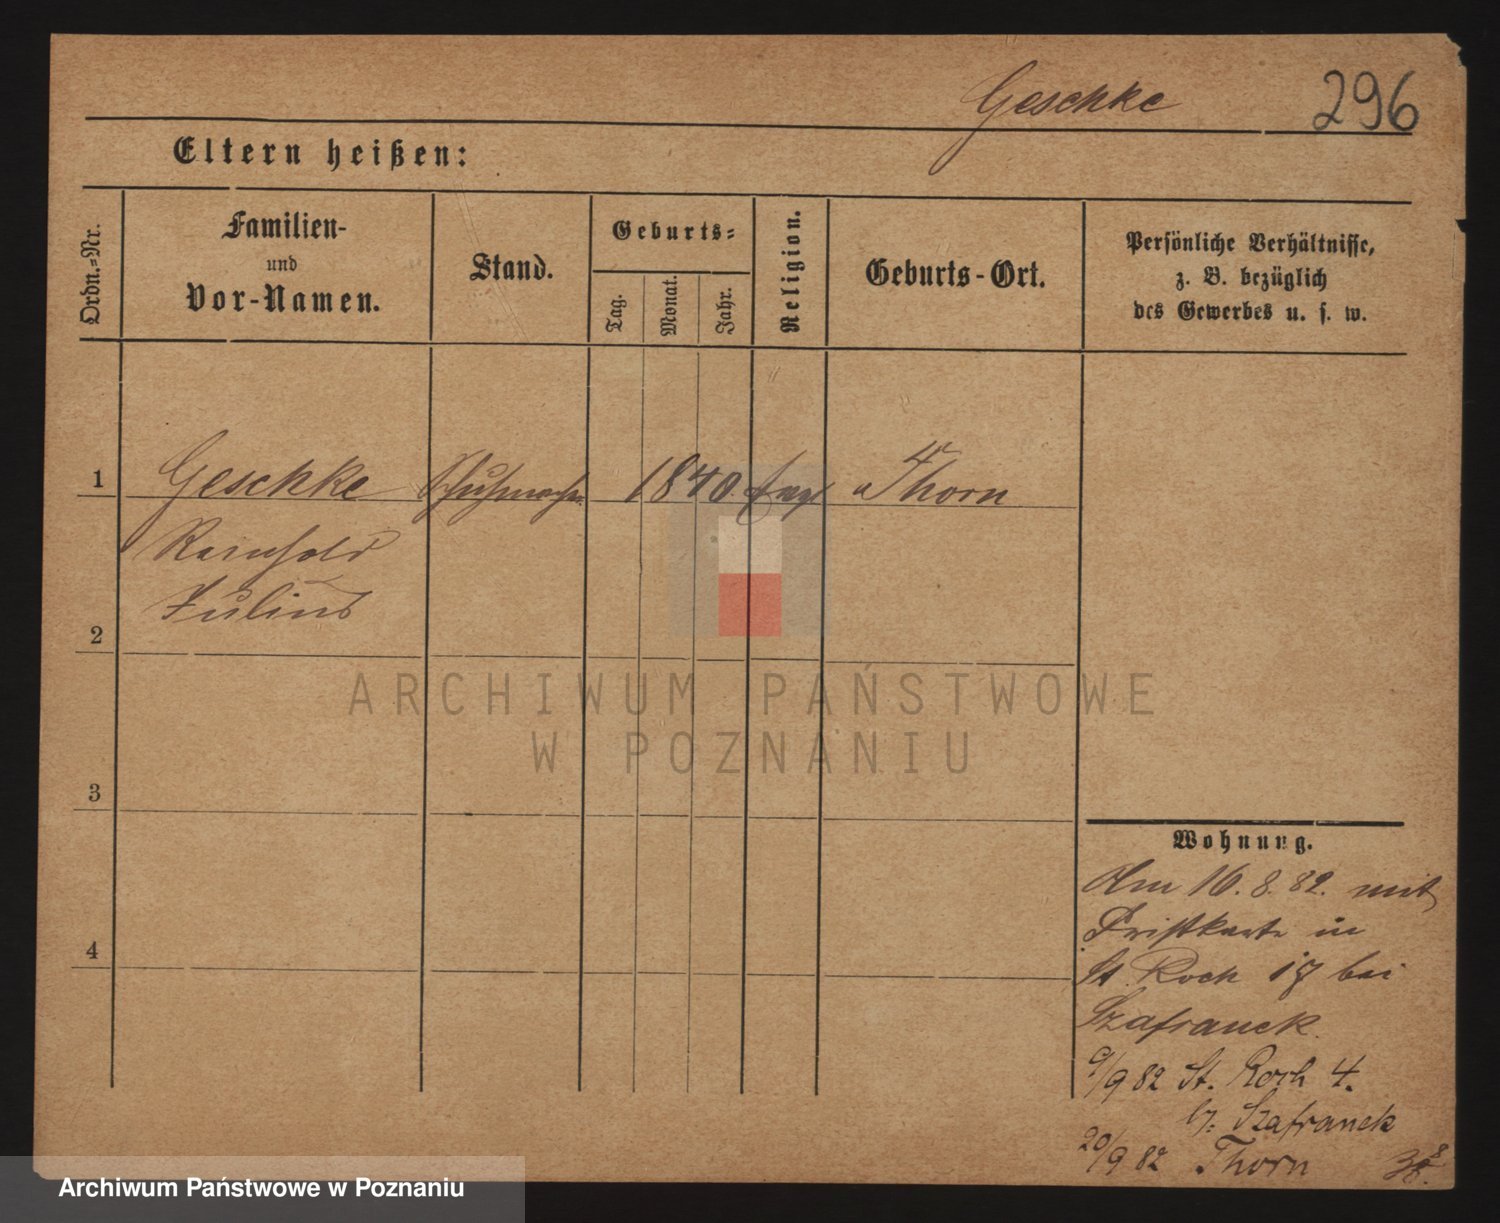 Geschke 296
Eltern heißen:
Ordn.-Nr.
Familien-
und
Vor-Namen.
Stand.
Geburts-
Tag.
Monat.
Jahr.
Religion.
Geburts-Ort.
Persönliche Verhältnisse,
z. B. bezüglich
des Gewerbes u. s. w.
1 Geschke Schuhmacher 1840. evgl Thorn
Reinhold
Julius
2
ARCHIWUM PAŃSTWOWE
W POZNANIU
3
4
Wohnung.
Am 16. 8. 82. mit
Fristkarte in
St Roch bei
Szafranek.
9/9 82 St. Roch 4.
b. Szafranek
20/9 82 Thorn
Archiwum Państwowe w Poznaniu